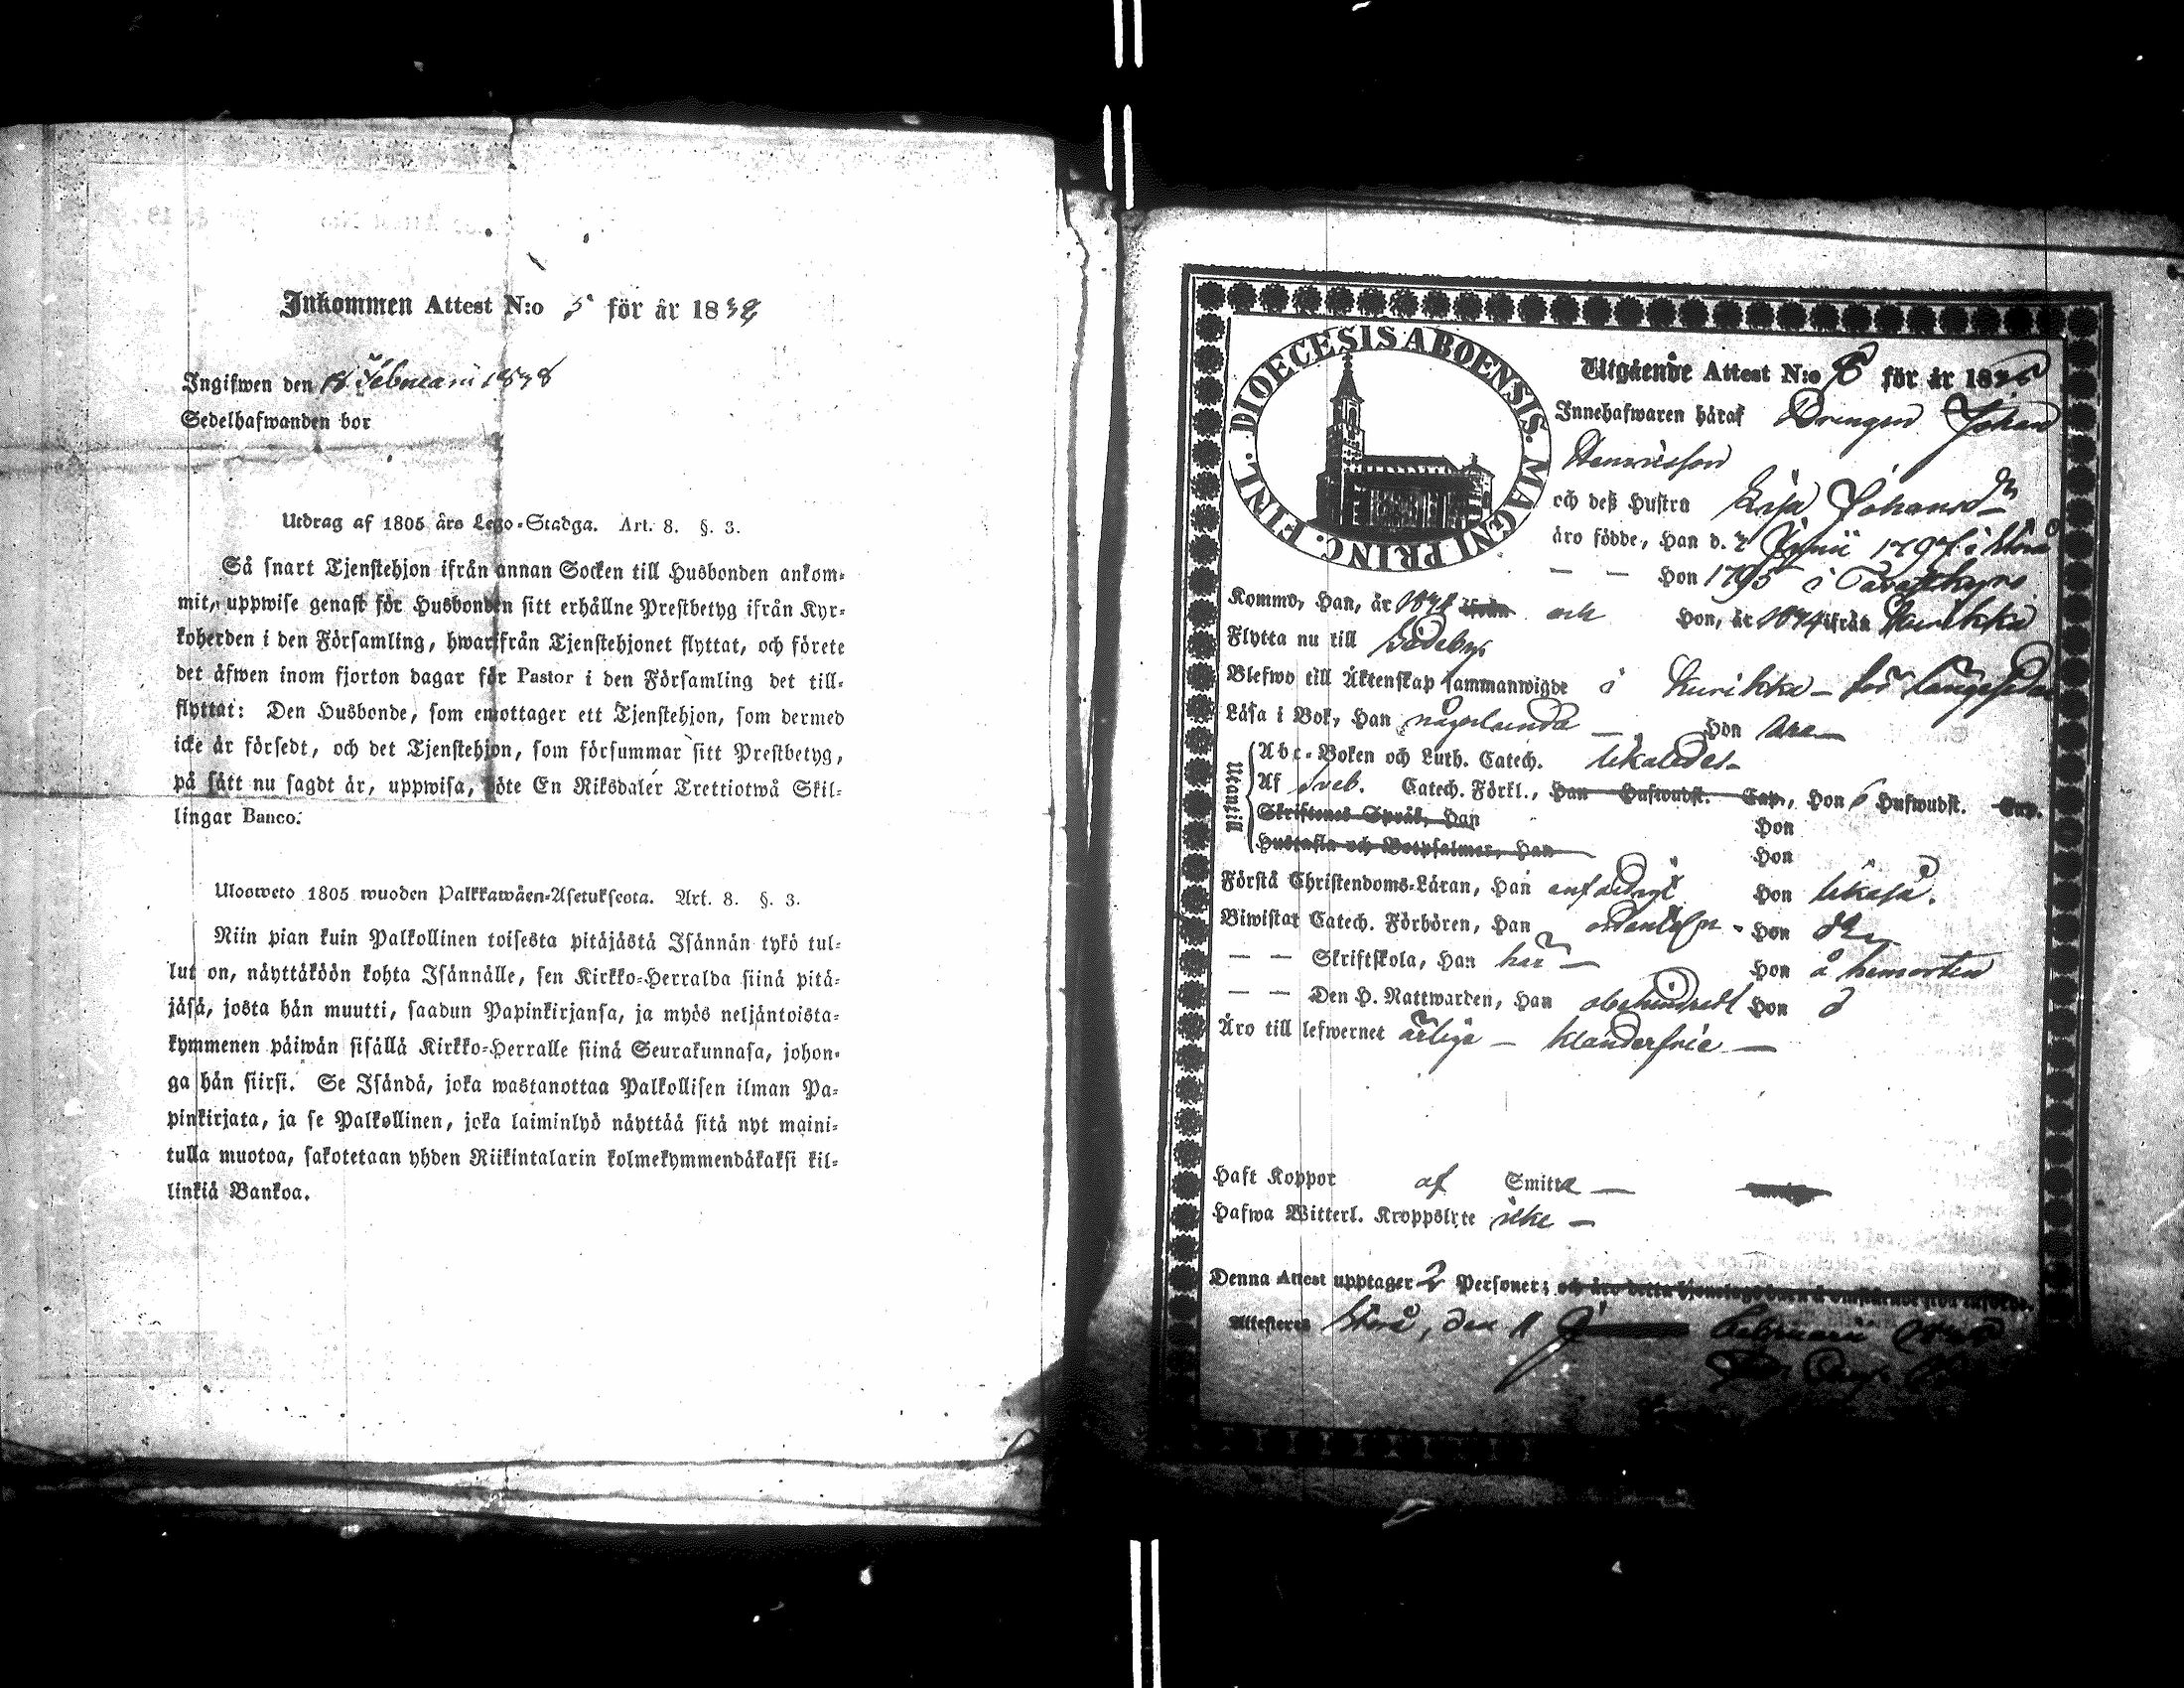 Inkommen Attest N:o 5 för år 1838
Ingifwen den 18 Februarii 1838
Sedelhafwanden bor
Utdrag af 1805 års Lego-Stadga. Art. 8. §. 3.
Så snart Tjenstehjon ifrån annan Socken till Husbonden ankom-
mit, uppwise genast för Husbonden sitt erhållne Prestbetyg ifrån Kyr-
koherden i den Församling, hwarifrån Tjenstehjonet flyttat, och förete
det äfwen inom fjorton dagar för Pastor i den Församling det till-
flyttat: Den Husbonde, som emottager ett Tjenstehjon, som dermed
icke är försedt, och det Tjenstehjon, som försummar sitt Prestbetyg,
på sätt nu sagdt är, uppwisa, böte En Riksdaler Trettiotwå Skil-
lingar Banco.
Ulosweto 1805 wuoden Palkkawäen-Asetuksesta. Art. 8. §. 3.
Niin pian kuin Palkollinen toisesta pitäjästä Isännän tykö tul-
lut on, näyttäköön kohta Isännälle, sen Kirkko-Herralda siinä pitä-
jäsä, josta hän muutti, saadun Papinkirjansa, ja myös neljäntoista-
kymmenen päiwän sisällä Kirkko-Herralle siinä Seurakunnasa, johon-
ga hän siirsi. Se Isändä, joka wastanottaa Palkollisen ilman Pa-
pinkirjata, ja se Palkollinen, joka laiminlyö näyttää sitä nyt maini-
tulla muotoa, sakotetaan yhden Riikintalarin kolmekymmendäkaksi kil-
linkiä Bankoa.
DIOECESIS ABOENSIS. MAGNI PRINC. FINL.
Utgående Attest N:o 8 för år 18
Innehafwaren häraf Drengen Johan
Henricsson
och deß Hustru Lisa Johansdr
äro födde, Han d. 7 Junii 1797 i Storå
— — Hon 1795 i Tavastkyro
Kommo, Han, år ifrån och Hon, år ifrån Kurikka
Flytta nu till Sideby
Blefwo till Äktenskap sammanwigde i Kurikka – för längesedan
Läsa i Bok, Han någorlunda — Hon
Utantill
Abc-Boken och Luth. Catech. likaledes
Af Sveb. Catech. Förkl., Han Hufwudst. Cap., Hon 6 Hufwudst. Cap.
Skriftenes Språk, Han Hon
Hustafla och Botpsalmer, Han Hon
Förstå Christendoms-Läran, Han enfaldigt Hon likaså.
Biwistat Catech. Förhören, Han ordentligen Hon do
— — Skriftskola, Han här — Hon å hemorten
— — Den H. Nattwarden, Han obehindradt Hon d
Äro till lefwernet ärliga – klanderfrie —
Haft Koppor af Smitta —
Hafwa Witterl. Kroppslyte icke —
Denna Attest upptager 2 Personer; och äro detta hjonelags barn å omstående sida införde.
Attesteras Storå, den 11 Februarii